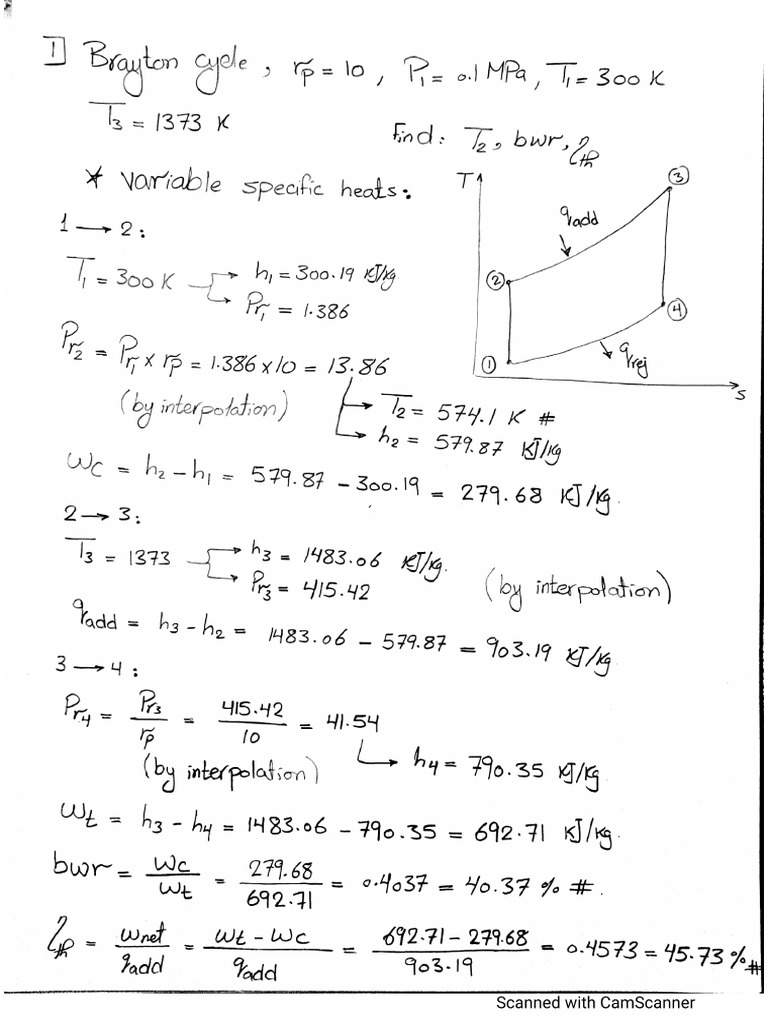 1 Brayton cycle, rp = 10, P1 = 0.1 MPa, T1 = 300 K
T3 = 1373 K
Find: T2, bwr, ηth
* Variable specific heats:
1 → 2:
T1 = 300 K → h1 = 300.19 KJ/kg
→ Pr1 = 1.386
Pr2 = Pr1 × rp = 1.386 × 10 = 13.86
(by interpolation) → T2 = 574.1 K #
→ h2 = 579.87 KJ/kg
T
3
qadd
2
4
1
qrej
s
wc = h2 - h1 = 579.87 - 300.19 = 279.68 KJ/kg.
2 → 3:
T3 = 1373 → h3 = 1483.06 KJ/kg.
→ Pr3 = 415.42 (by interpolation)
qadd = h3 - h2 = 1483.06 - 579.87 = 903.19 KJ/kg
3 → 4:
Pr4 = Pr3 / rp = 415.42 / 10 = 41.54
(by interpolation) → h4 = 790.35 KJ/kg
wt = h3 - h4 = 1483.06 - 790.35 = 692.71 KJ/kg.
bwr = wc / wt = 279.68 / 692.71 = 0.4037 = 40.37 % #.
ηth = wnet / qadd = wt - wc / qadd = 692.71 - 279.68 / 903.19 = 0.4573 = 45.73 % #
Scanned with CamScanner